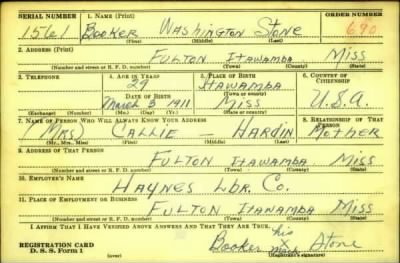 SERIAL NUMBER 1. NAME (Print) ORDER NUMBER
1561 Booker Washington Stone 690
(First) (Middle) (Last)
2. ADDRESS (Print)
Fulton Itawamba Miss
(Number and street or R. F. D. number) (Town) (County) (State)
3. TELEPHONE 4. AGE IN YEARS 5. PLACE OF BIRTH 6. COUNTRY OF CITIZENSHIP
29 Itawamba
DATE OF BIRTH (Town or county)
March 3 1911 Miss U.S.A.
(Exchange) (Number) (Mo.) (Day) (Yr.) (State or country)
7. NAME OF PERSON WHO WILL ALWAYS KNOW YOUR ADDRESS 8. RELATIONSHIP OF THAT PERSON
(Mrs) Callie — Hardin Mother
(Mr., Mrs., Miss) (First) (Middle) (Last)
9. ADDRESS OF THAT PERSON
Fulton Itawamba Miss
(Number and street or R. F. D. number) (Town) (County) (State)
10. EMPLOYER'S NAME
Haynes Lbr. Co.
11. PLACE OF EMPLOYMENT OR BUSINESS
Fulton Itawamba Miss
(Number and street or R. F. D. number) (Town) (County) (State)
I AFFIRM THAT I HAVE VERIFIED ABOVE ANSWERS AND THAT THEY ARE TRUE.
his
REGISTRATION CARD Booker X Stone
D. S. S. Form 1 (over) mark (Registrant's signature)